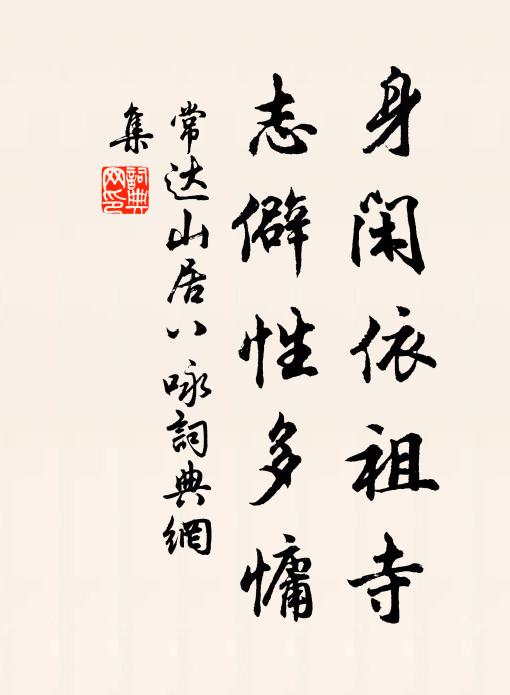 身閑依祖寺
志僻性多慵
常达山居八咏詞典網
集
詞典网印